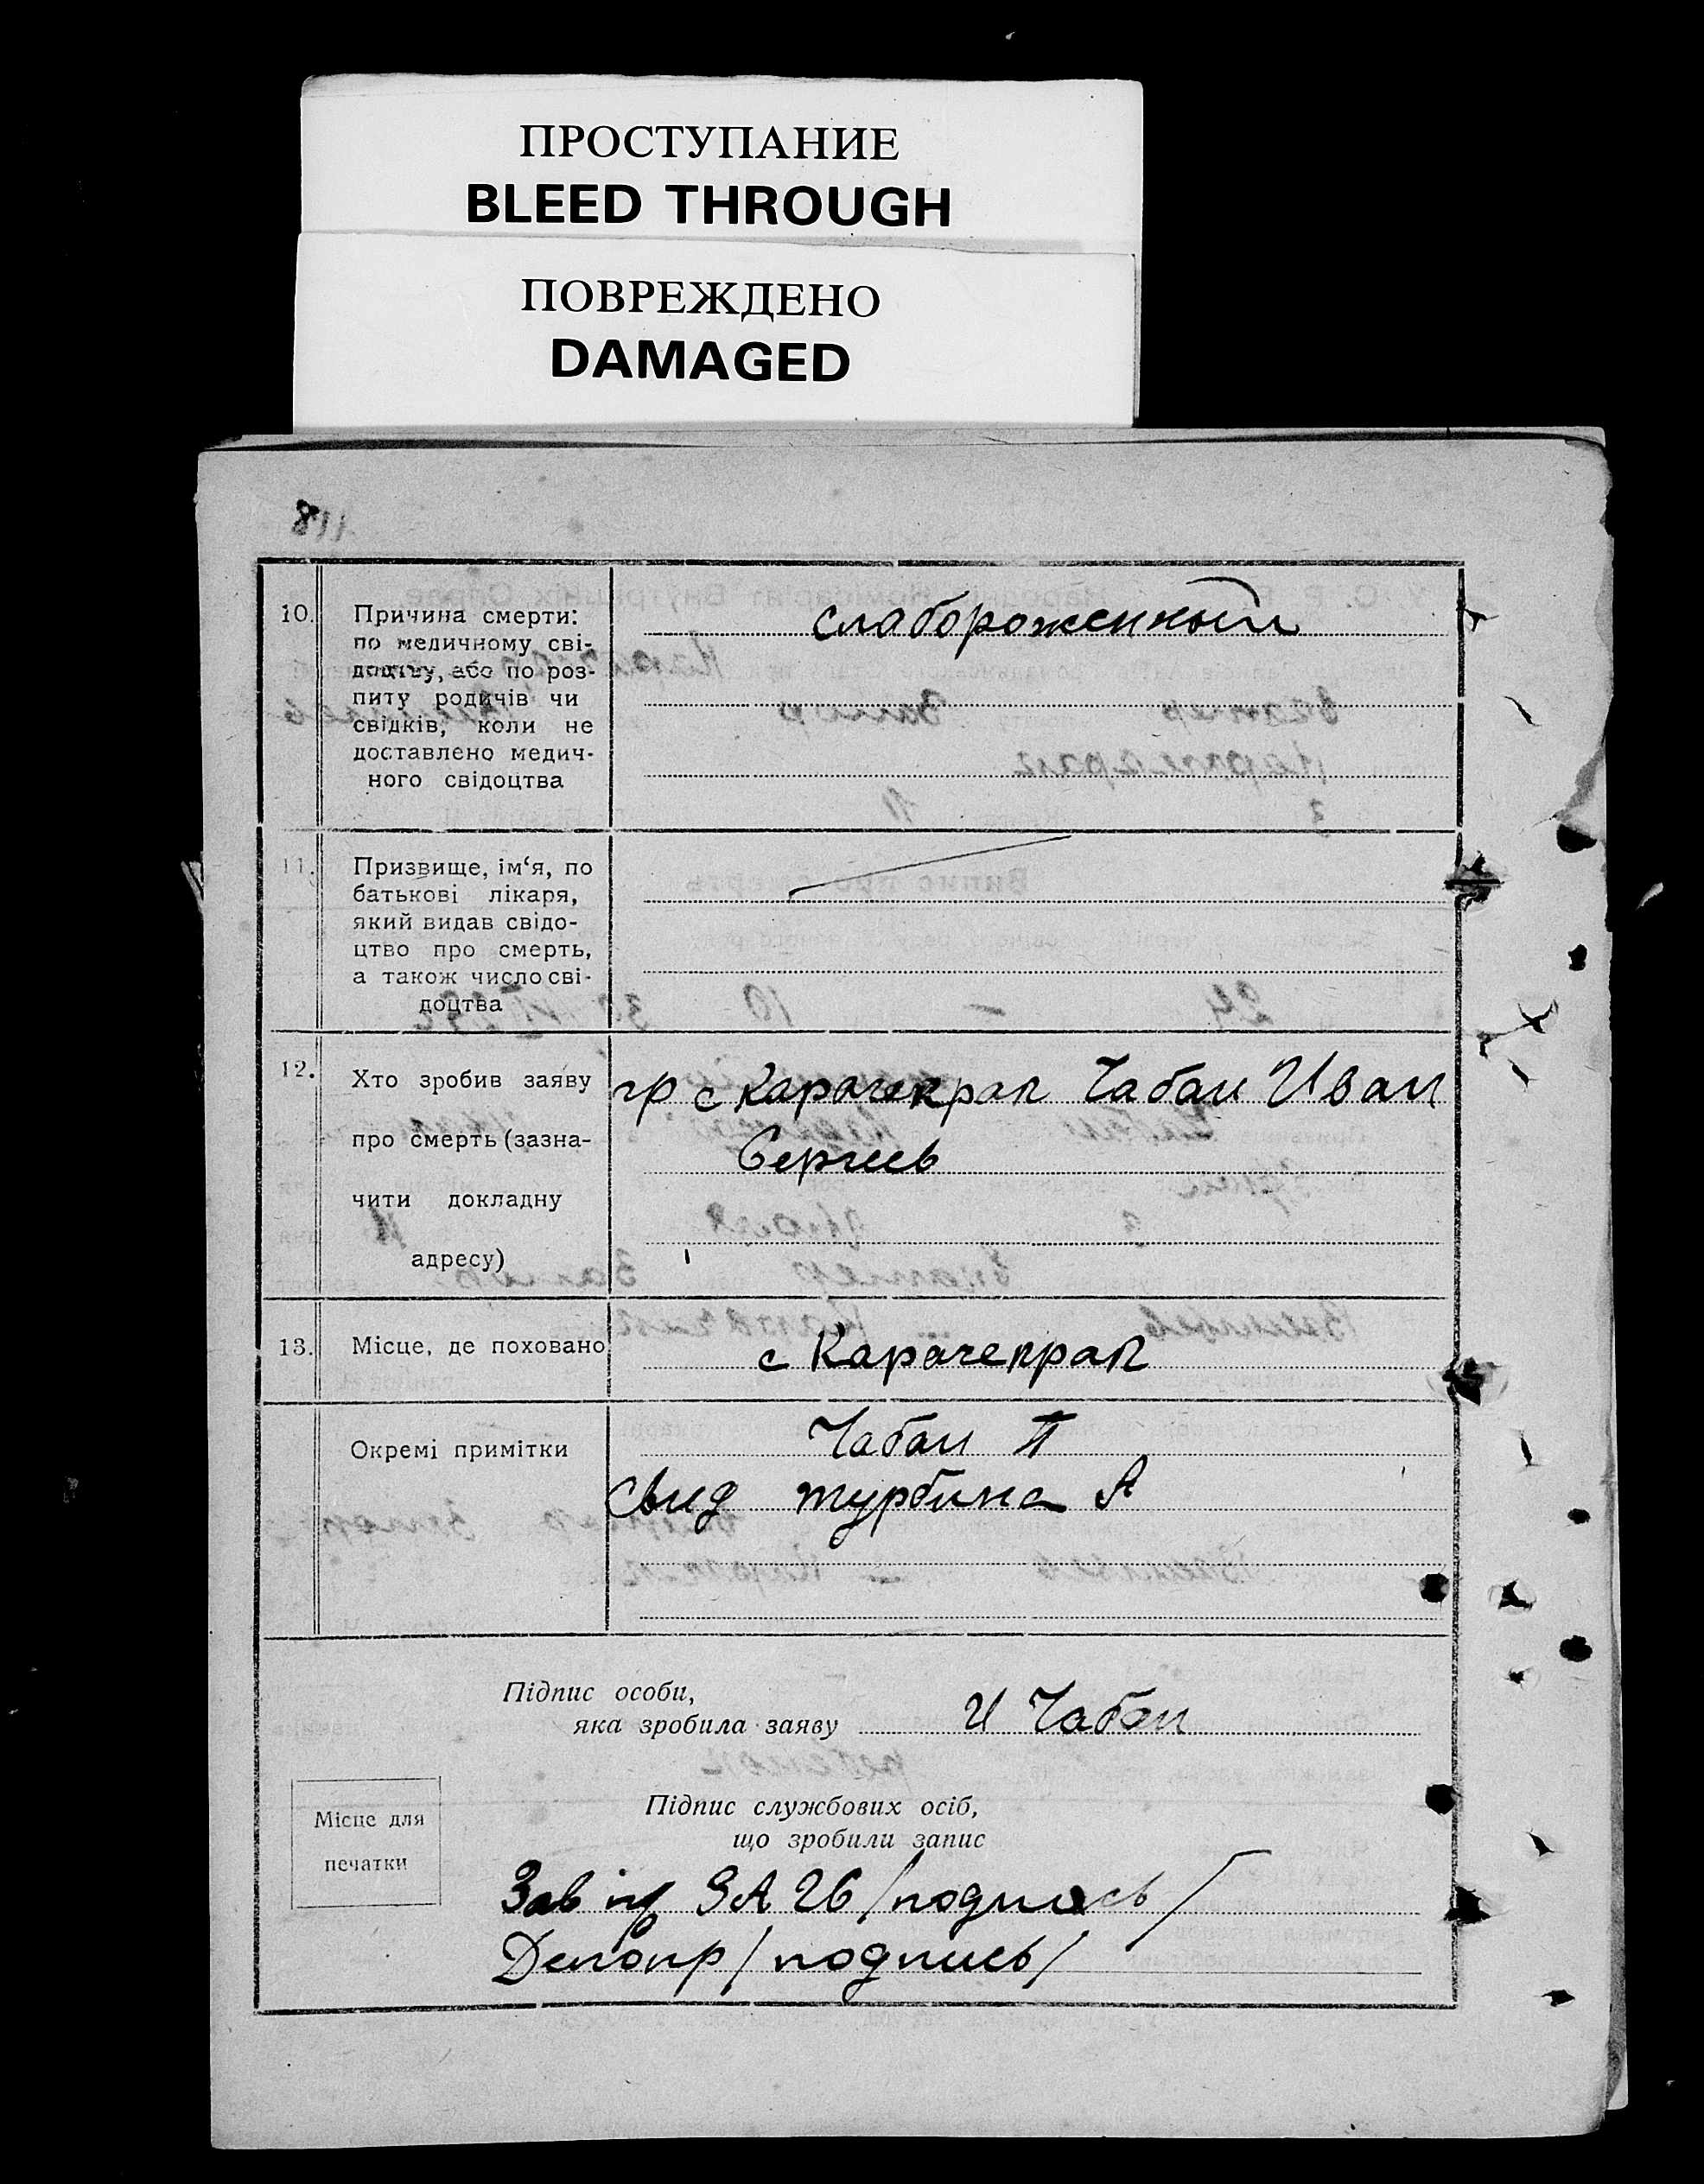 ПРОСТУПАНИЕ
BLEED THROUGH
ПОВРЕЖДЕНО
DAMAGED
10. Причина смерти:
по медичному сві-
доцтву, або по роз-
питу родичів чи
свідків, коли не
доставлено медич-
ного свідоцтва
слабороженный
11. Призвище, ім‘я, по
батькові лікаря,
який видав свідо-
цтво про смерть,
а також число сві-
доцтва
12. Хто зробив заяву
про смерть (зазна-
чити докладну
адресу)
гр с Карачекрак Чабан Иван
Сергеев
13. Місце, де поховано
с Карачекрак
Окремі примітки
Чабан П
Свид Турбина А
Підпис особи,
яка зробила заяву И Чабан
Місце для
печатки
Підпис службових осіб,
що зробили запис
Зав ЗАГС /подпись/
/подпись/